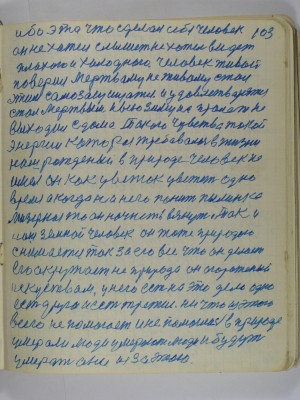 ибо эта что сделан себе человек 103
он не хотел слышет не хотел видет
плохого и холодного человек живой
поверил мертвому не живому стал
этим самозащищатся и удовлетворятся
стал мертвым
выходил с дома такого чувства такой
энергии которой требовалось в жизни
ним рожденки в природе человек не
имел он как цветок цветет одно
время а когда на него попот пылинка
мизерная то он начнет вянут так и
наш земной человек он тоже природно
снимается так за сло все что он делает
его окружает не природа он огорожений
искуством, у него есть на это дело одно
есть друго и есть третие. ни что от этого
всего не помогает и не помогло в природе
умерали люди умерают люди и будут
умерать они из за этого.